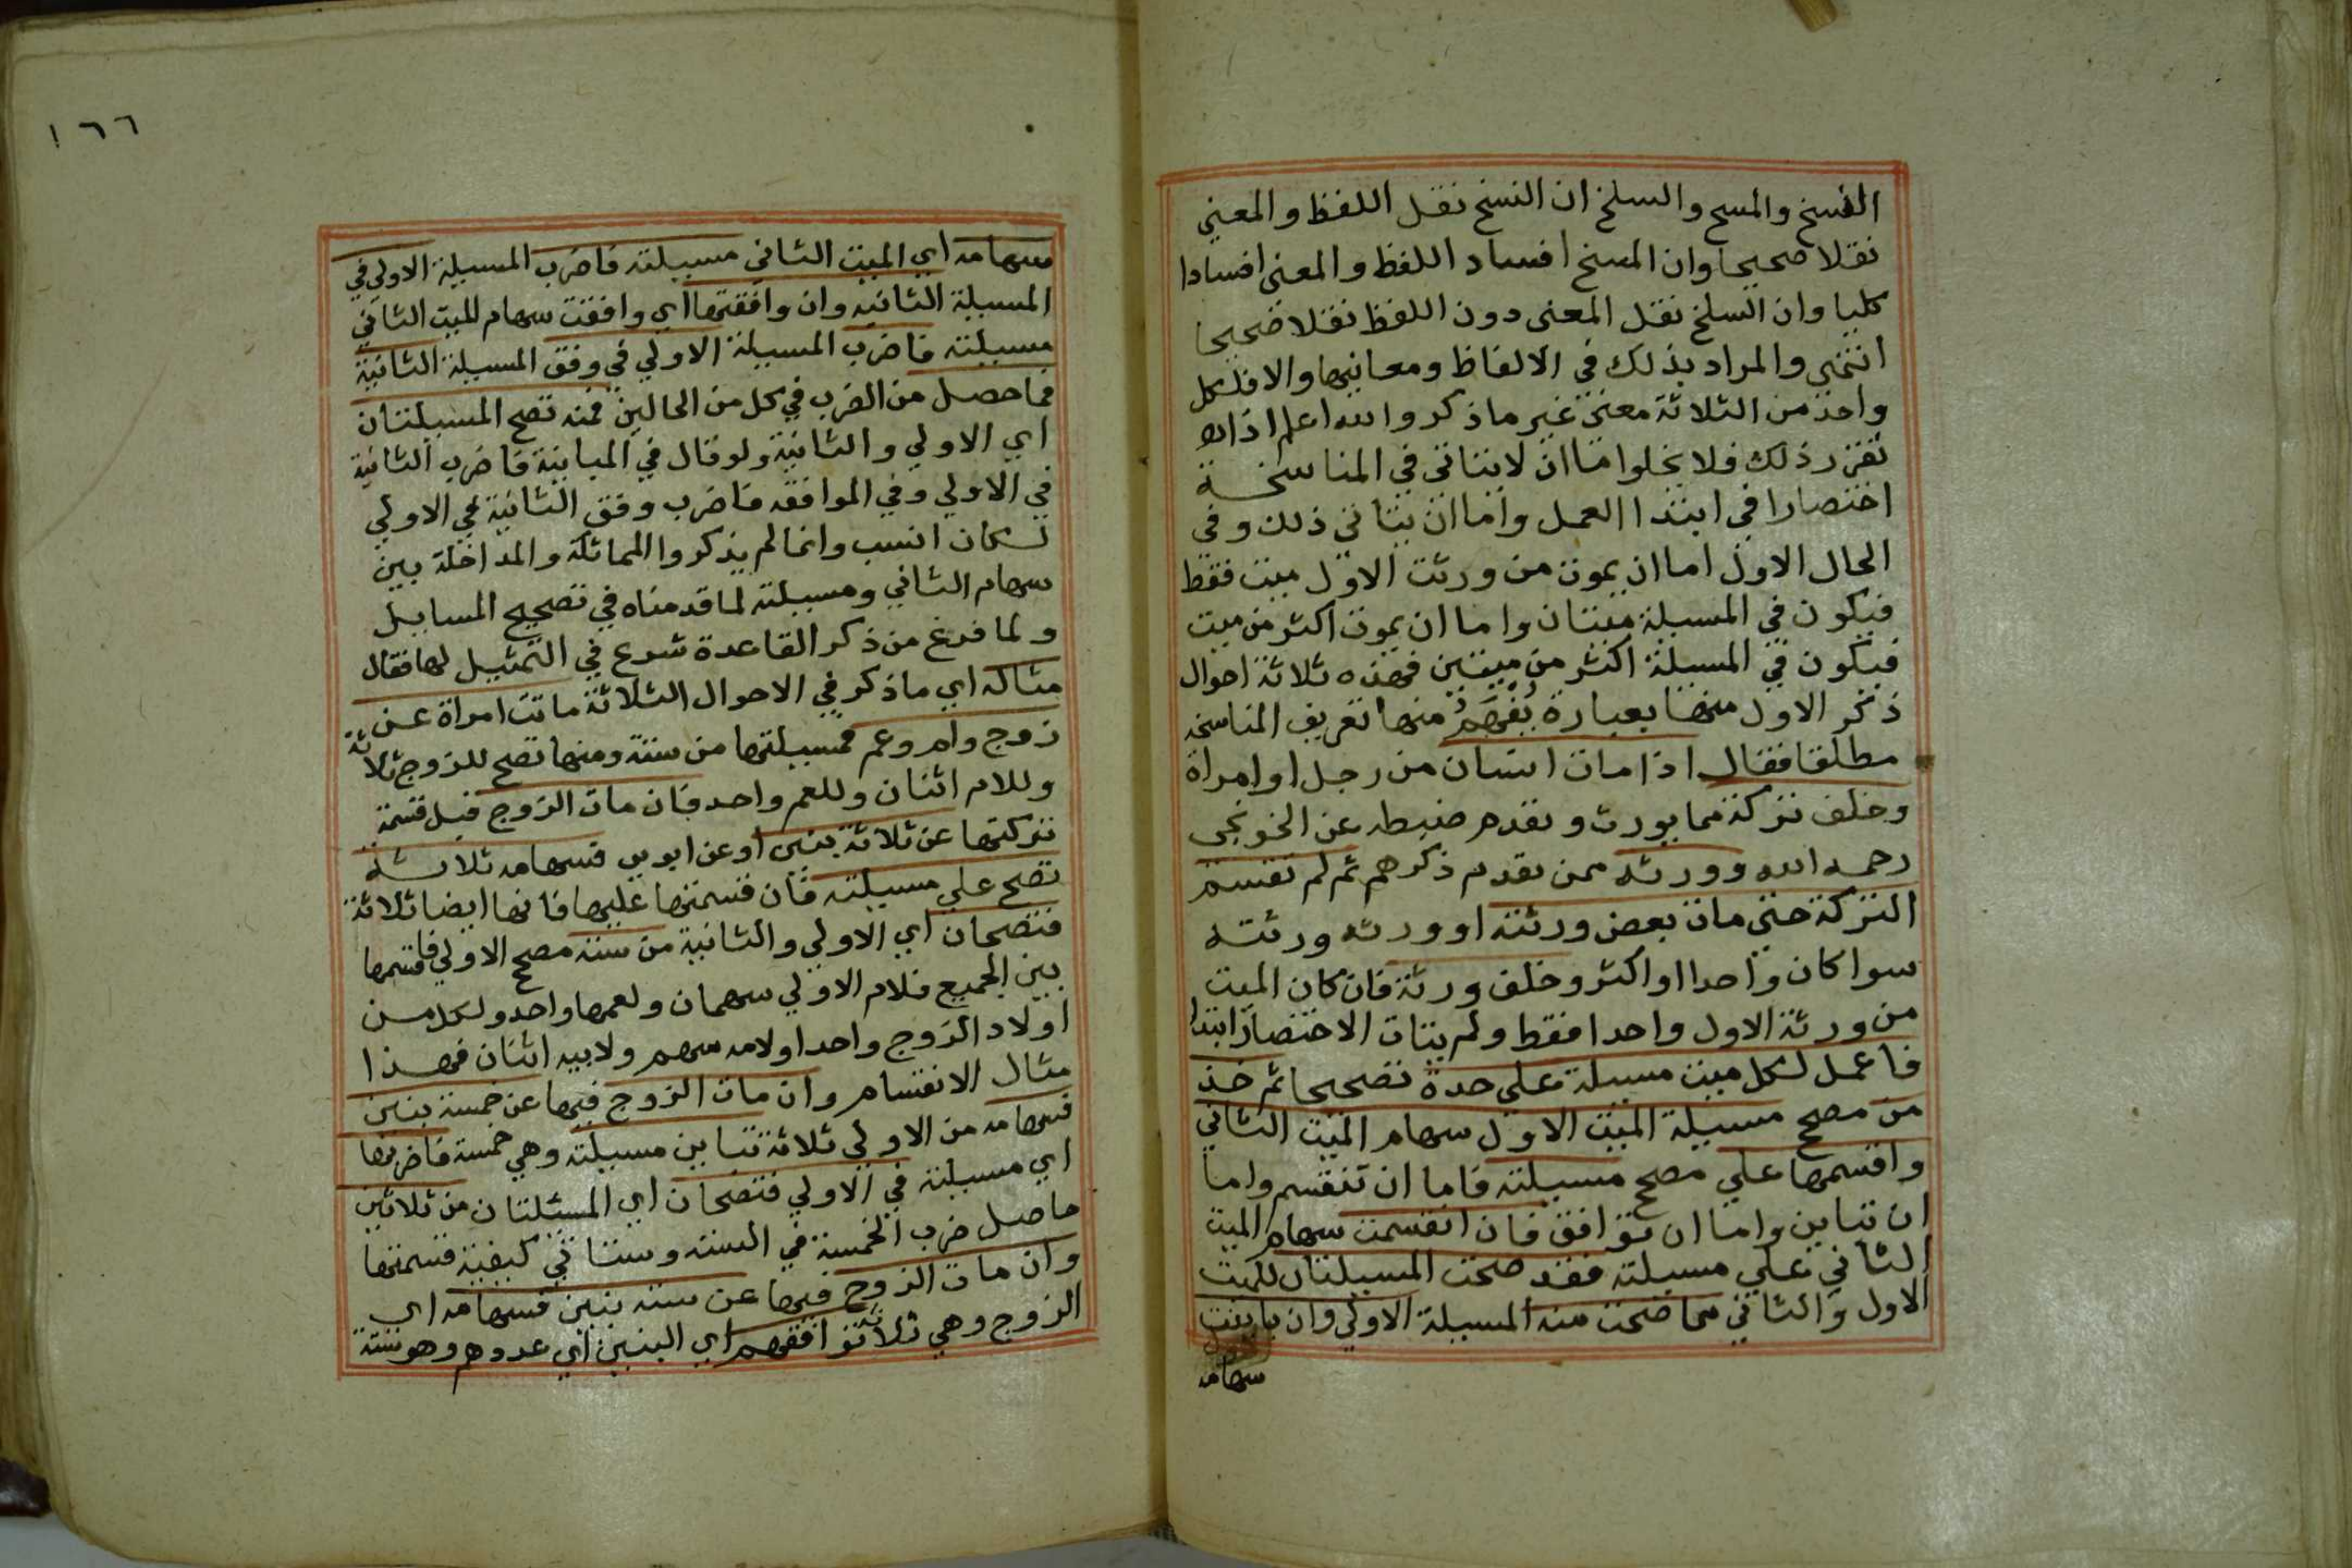 النسخ والمسخ والسلخ ان النسخ نقل اللفظ والمعني
نقلا صحيحا وان المسخ افساد اللفظ والمعنى افسادا
كليا وان السلخ نقل المعنى دون اللفظ نقلا صحيحا
انتهى والمراد بذلك في الالفاظ ومعانيها والا فلكل
واحد من الثلاثة معنى غير ما ذكر والله اعلم اذا
تقرر ذلك فلا يخلوا اما ان لا يتاتى في المناسخة
اختصارا في ابتدا العمل واما ان يتاتى ذلك وفي
الحال الاول اما ان يموت من ورثت الاول ميت فقط
فيكون في المسيلة ميتان واما ان يموت اكثر من ميت
فيكون في المسيلة اكثر من ميتين فهذه ثلاثة احوال
ذكر الاول منها بعبارة يُفهَمُ منها تعريف المناسخه
مطلقا فقال اذا مات انسان من رجل او امراة
وخلف تركة مما يورث وتقدم ضبطه عن الخونجى
رحمه الله وورثه ممن تقدم ذكرهم ثم لم تقتسم
التركة حتى مات بعض ورثته او ورثه ورثته
سوا كان واحدا او اكثر وخلف ورثة فان كان الميت
من ورثة الاول واحدا فقط ولم يتات الاختصار ابتدا
فاعمل لكل ميت مسيلة على حدة تصحيحا ثم خذ
من مصح مسيلة الميت الاول سهام الميت الثاني
واقسمها علي مصح مسيلته فاما ان تنقسم واما
ان تباين واما ان توافق فان انقسمت سهام الميت
الثاني علي مسيلته فقد صحت المسيلتان للميت
الاول والثاني مما صحت منه المسيلة الاولي وان باينت
سهامه
١٦٦
سهامه اي الميت الثاني مسيلته فاضرب المسيلة الاولي في
المسيلة الثانيه وان وافقتها اي وافقت سهام الميت الثاني
مسيلته فاضرب المسيلة الاولي في وفق المسيلة الثانية
فما حصل من الضرب في كل من الحالين فمنه تصح المسيلتان
اي الاولي والثانية ولو قال في المباينة فاضرب الثانية
في الاولي وفي الموافقه فاضرب وفق الثانية في الاولي
لكان انسب وانما لم يذكروا المماثلة والمداخلة بين
سهام الثاني ومسيلته لما قدمناه في تصحيح المسايل
ولما فرغ من ذكر القاعدة شرع في التمثيل لها فقال
مثاله اي ما ذكر في الاحوال الثلاثة ماتت امراة عن
زوج وام وعم فمسيلتها من ستة ومنها تصح للزوج ثلاثة
وللام اثنان وللعم واحد فان مات الزوج قبل قسمة
تركتها عن ثلاثة بنين او عن ابوين فسهامه ثلاثه
تصح علي مسيلته فان قسمتها عليها فانها ايضا ثلاثة
فتصحان اي الاولي والثانية من ستة مصح الاولي فاقسمها
بين الجميع فلام الاولي سهمان ولعمها واحد ولكل من
اولاد الزوج واحد او لامه سهم ولابيه اثنان فهذا
مثال الانقسام وان مات الزوج فيها عن خمسة بنين
فسهامه من الاولي ثلاثة تباين مسيلته وهي خمسة فاضربها
اي مسيلته في الاولي فتصحان اي المسئلتان من ثلاثين
حاصل ضرب الخمسة في السته وستاتي كيفية قسمتها
وان مات الزوج فيها عن سته بنين فسهامه اي
الزوج وهي ثلاثة توافقهم اي البنين اي عددهم وهو ستة